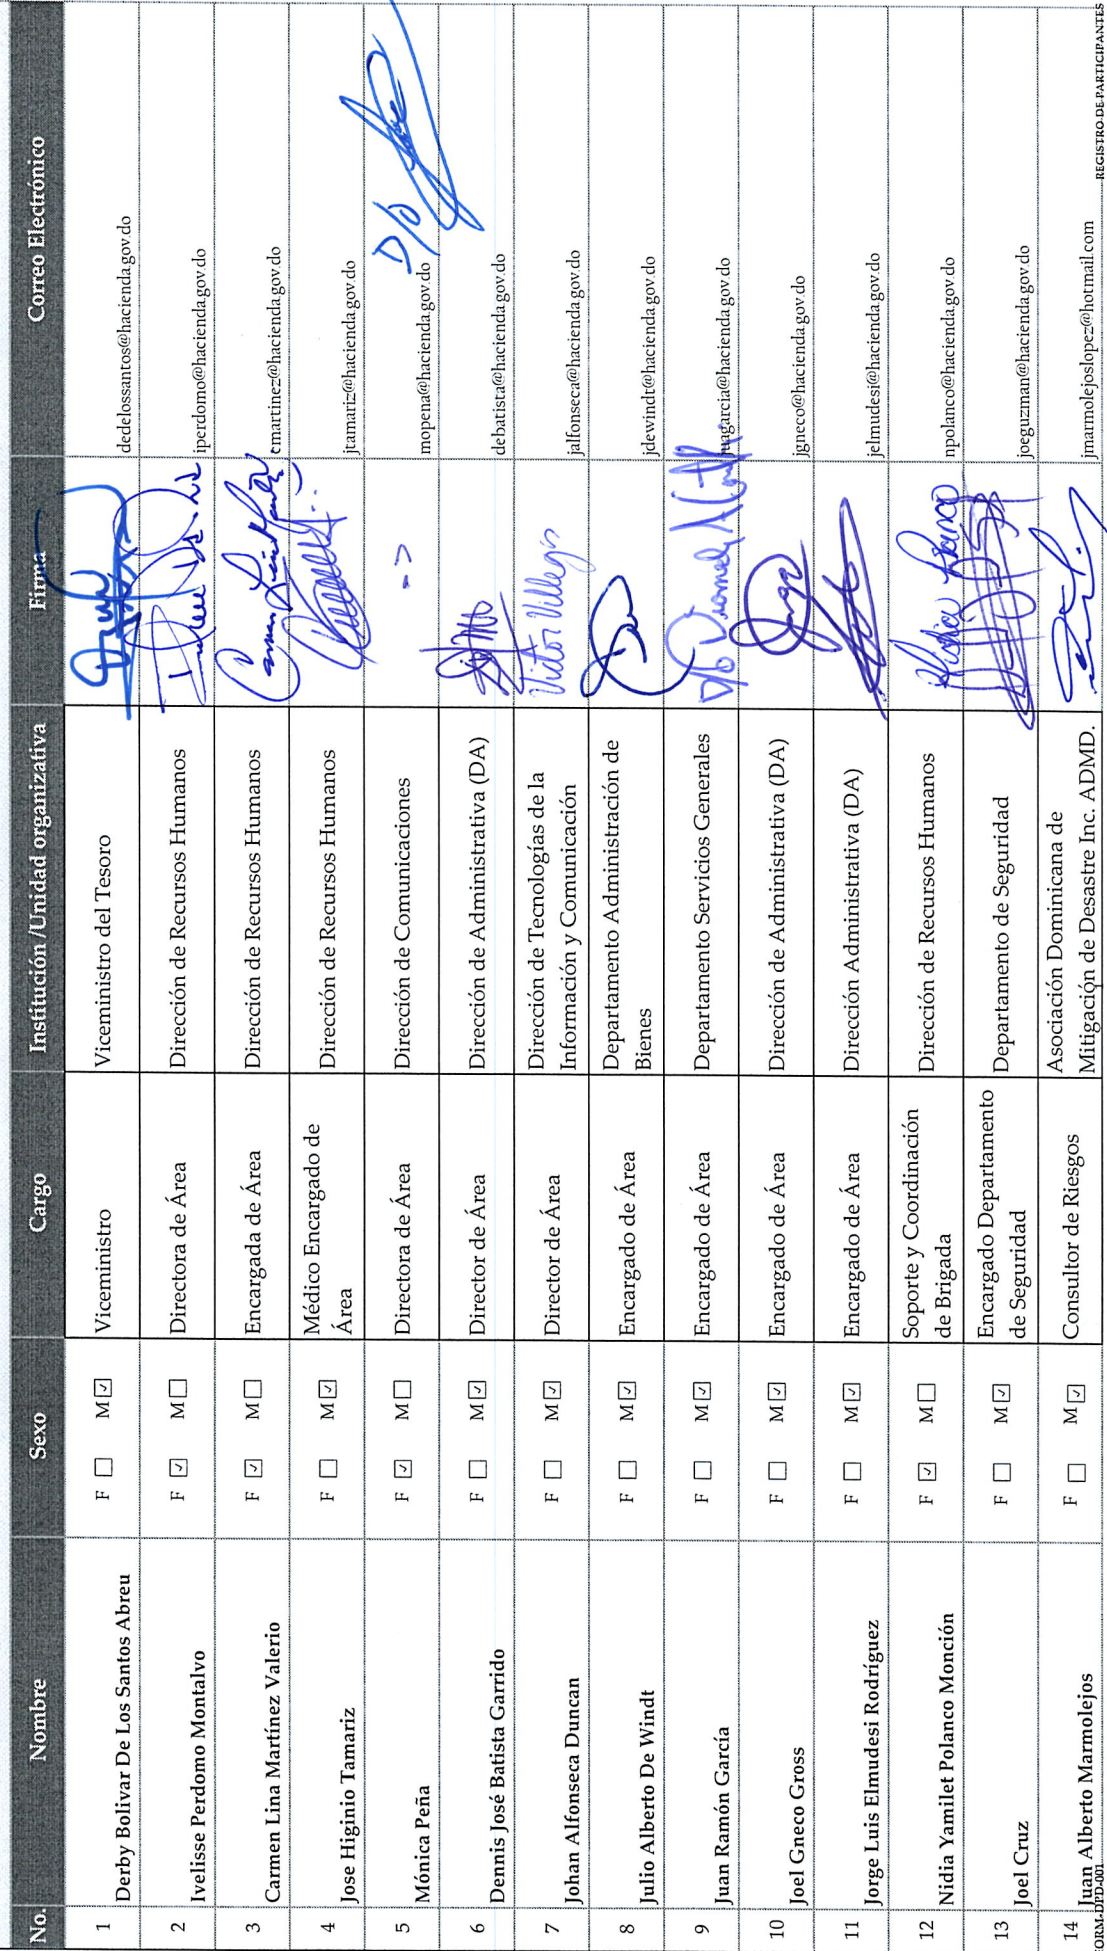 No. Nombre Sexo Cargo Institución /Unidad organizativa Firma Correo Electrónico
1 Derby Bolivar De Los Santos Abreu F ☐ M ☑ Viceministro Viceministro del Tesoro dedelossantos@hacienda.gov.do
2 Ivelisse Perdomo Montalvo F ☑ M ☐ Directora de Área Dirección de Recursos Humanos iperdomo@hacienda.gov.do
3 Carmen Lina Martínez Valerio F ☑ M ☐ Encargada de Área Dirección de Recursos Humanos cmartinez@hacienda.gov.do
4 Jose Higinio Tamariz F ☐ M ☑ Médico Encargado de
Área Dirección de Recursos Humanos jtamariz@hacienda.gov.do
5 Mónica Peña F ☑ M ☐ Directora de Área Dirección de Comunicaciones => mopena@hacienda.gov.do D/o
6 Dennis José Batista Garrido F ☐ M ☑ Director de Área Dirección de Administrativa (DA) debatista@hacienda.gov.do
7 Johan Alfonseca Duncan F ☐ M ☑ Director de Área Dirección de Tecnologías de la
Información y Comunicación Victor Villegas jalfonseca@hacienda.gov.do
8 Julio Alberto De Windt F ☐ M ☑ Encargado de Área Departamento Administración de
Bienes jdewindt@hacienda.gov.do
9 Juan Ramón García F ☐ M ☑ Encargado de Área Departamento Servicios Generales D/o juagarcia@hacienda.gov.do
10 Joel Gneco Gross F ☐ M ☑ Encargado de Área Dirección de Administrativa (DA) jgneco@hacienda.gov.do
11 Jorge Luis Elmudesi Rodríguez F ☐ M ☑ Encargado de Área Dirección Administrativa (DA) jelmudesi@hacienda.gov.do
12 Nidia Yamilet Polanco Monción F ☑ M ☐ Soporte y Coordinación
de Brigada Dirección de Recursos Humanos Nidia Polanco npolanco@hacienda.gov.do
13 Joel Cruz F ☐ M ☑ Encargado Departamento
de Seguridad Departamento de Seguridad joeguzman@hacienda.gov.do
14 Juan Alberto Marmolejos F ☐ M ☑ Consultor de Riesgos Asociación Dominicana de
Mitigación de Desastre Inc. ADMD. jmarmolejoslopez@hotmail.com
FORM-DPD-001 REGISTRO DE PARTICIPANTES